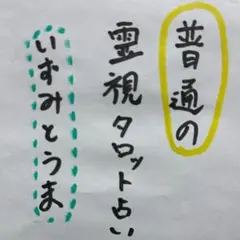 普通の
霊視タロット占い
いずみとうま